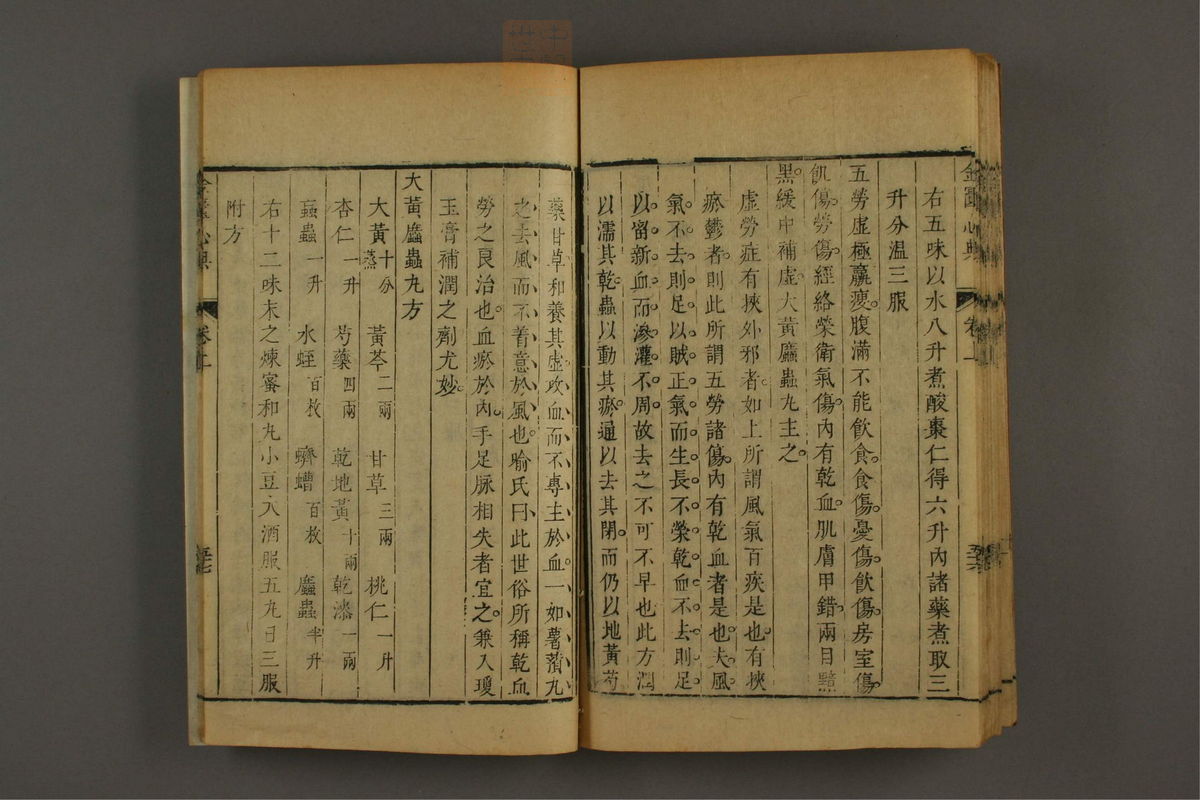 右五味以水八升煮酸棗仁得六升內諸藥煮取三
升分温三服
五勞虛極羸瘦腹滿不能飲食食傷憂傷飲傷房室傷
飢傷勞傷經絡榮衛氣傷內有乾血肌膚甲錯兩目黯
黑緩中補虛大黃䗪蟲丸主之
虛勞症有挾外邪者如上所謂風氣百疾是也有挾
瘀鬱者則此所謂五勞諸傷內有乾血者是也夫風
氣不去則足以賊正氣而生長不榮乾血不去則足
以留新血而滲灌不周故去之不可不早也此方潤
以濡其乾蟲以動其瘀通以去其閉而仍以地黃芍
藥甘草和養其虛攻血而不專主於血一如薯蕷丸
之去風而不着意於風也喻氏曰此世俗所稱乾血
勞之良治也血瘀於內手足脉相失者宜之兼入瓊
玉膏補潤之劑尤妙
大黃䗪蟲丸方
大黃十分蒸 黃芩二兩 甘草三兩 桃仁一升
杏仁一升 芍藥四兩 乾地黃十兩 乾漆一兩
蝱蟲一升 水蛭百枚 蠐螬百枚 䗪蟲半升
右十二味末之煉蜜和丸小豆大酒服五丸日三服
附方
金匱心典 卷上